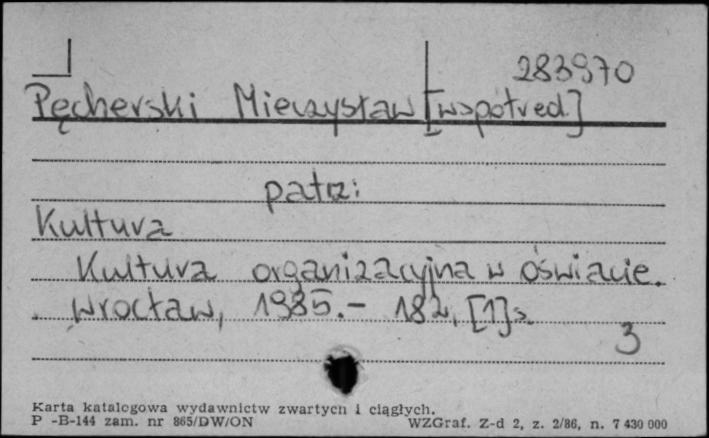 283970
Pęcherski Mieczysław [współred.]
patrz:
Kultura
Kultura organizacyjna w oświacie.
Wrocław, 1985.- 182, [1] s.
3
Karta katalogowa wydawnictw zwartych i ciągłych.
P -B-144 zam. nr 865/DW/ON WZGraf. Z-d 2, z. 2/86, n. 7 430 000